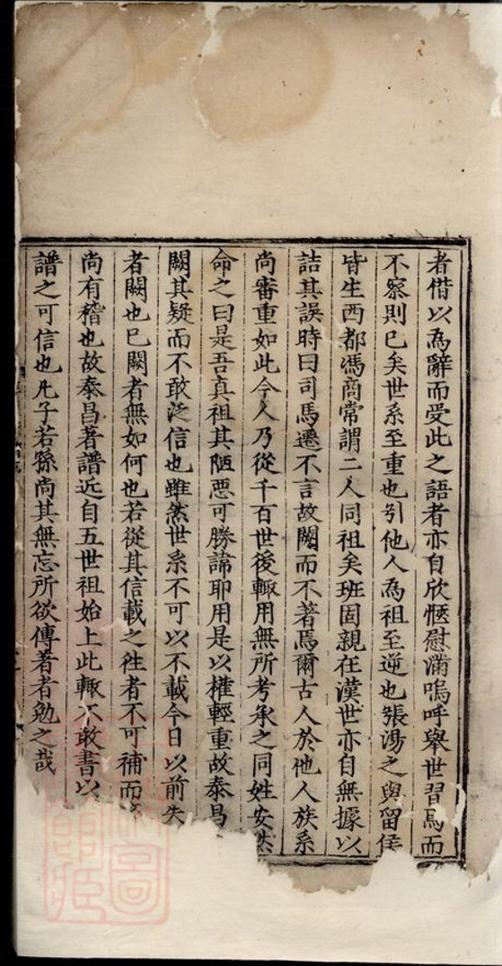 者借以為辭而受此之語者亦自欣愜慰滿嗚呼舉世習焉而
不察則已矣世系至重也引他人為祖至逆也張湯之與留侯
皆生西都馮商常謂二人同祖矣班固親在漢世亦自無據以
詰其誤時曰司馬遷不言故闕而不著焉爾古人於他人族系
尚審重如此今人乃從千百世後輙用無所考承之同姓安然
命之曰是吾真祖其陋惡可勝諱耶用是以權輕重故泰昌
闕其疑而不敢泛信也雖然世系不可以不載今日以前失
者闕也已闕者無如何也若從其信載之徃者不可補而
尚有稽也故泰昌著譜近自五世祖始上此輙不敢書以
譜之可信也凡子若孫尚其無忘所欲傳著者勉之哉